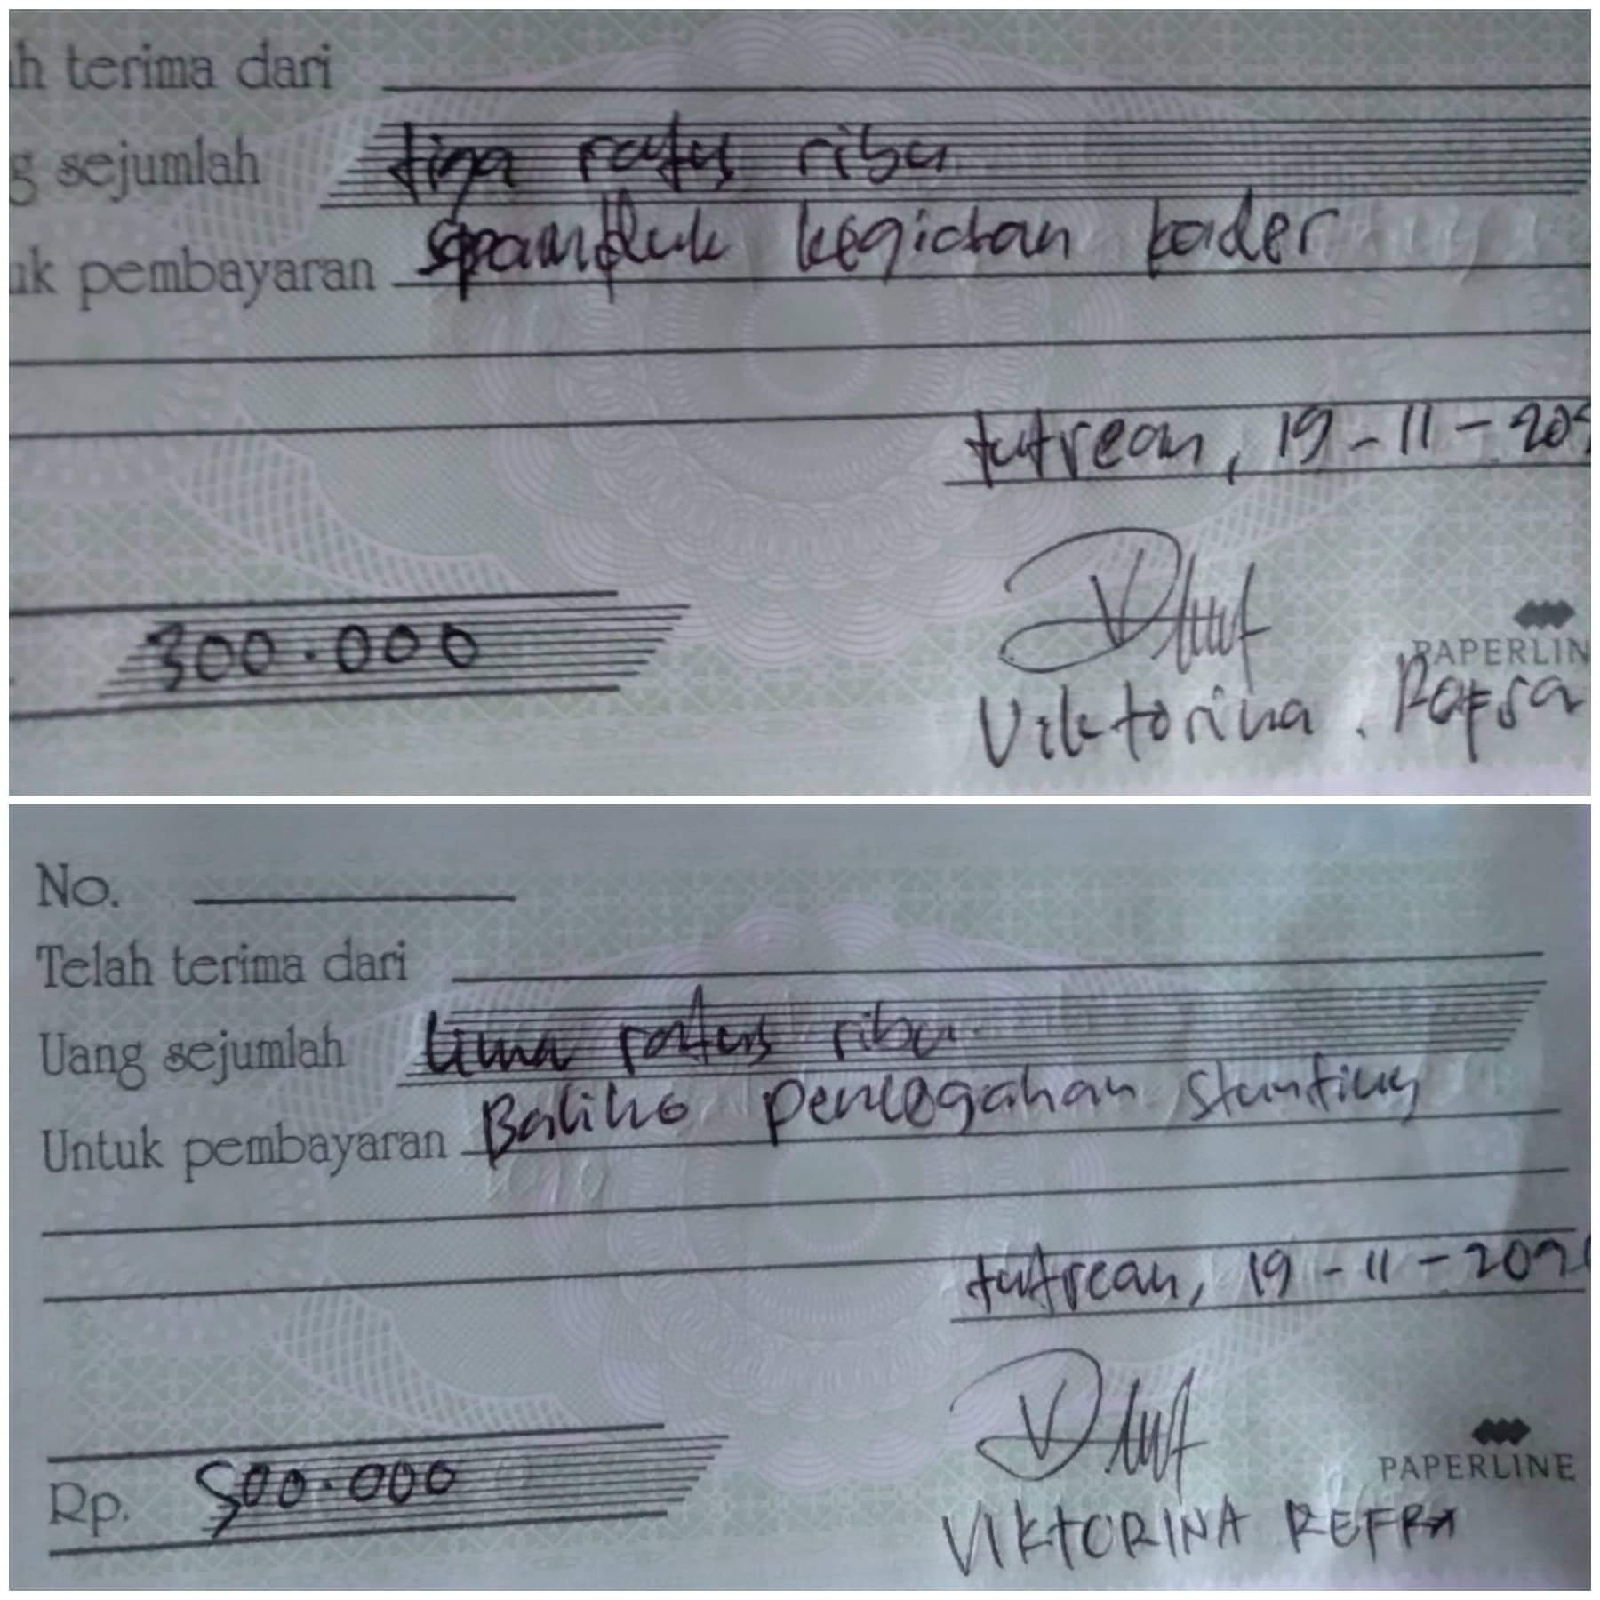 h terima dari
g sejumlah tiga ratus ribu
uk pembayaran spanduk kegiatan kader
tutrean, 19-11-20
300.000
PAPERLIN
Viktorina.
No.
Telah terima dari
Uang sejumlah lima ratus ribu
Untuk pembayaran Baliho pencegahan stunting
tutrean, 19-11-202
Rp. 500.000
PAPERLINE
VIKTORINA REFRA